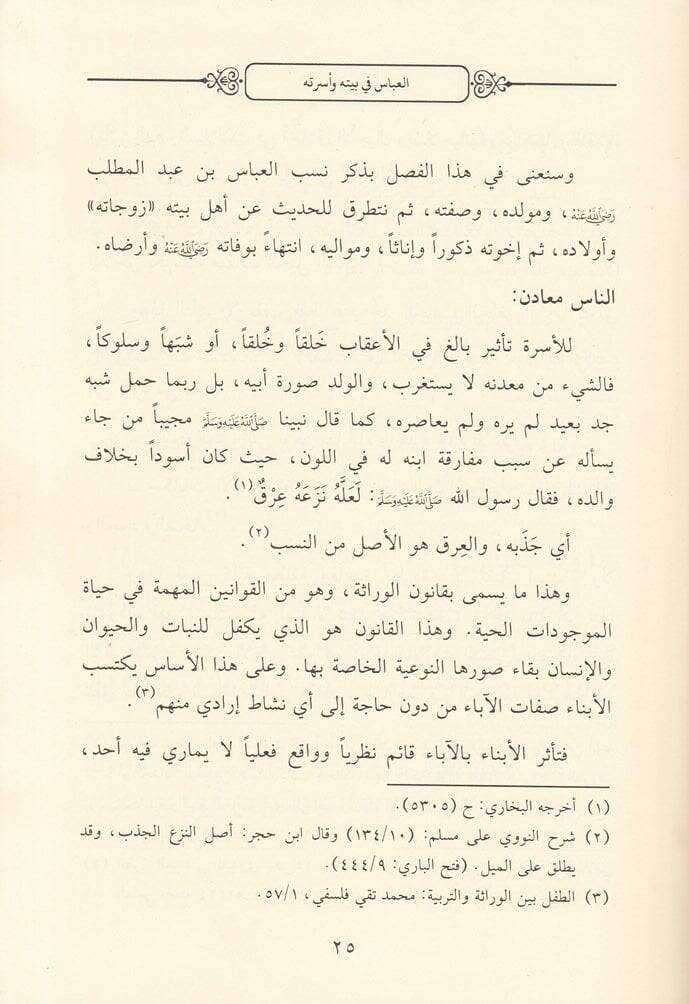 العباس في بيته وأسرته
وسنعنى في هذا الفصل بذكر نسب العباس بن عبد المطلب
رَضِيَ اللَّهُ عَنْهُ، ومولده، وصفته، ثم نتطرق للحديث عن أهل بيته «زوجاته»
وأولاده، ثم إخوته ذكوراً وإناثاً، ومواليه، انتهاءً بوفاته رَضِيَ اللَّهُ عَنْهُ وأرضاه.
الناس معادن:
للأسرة تأثير بالغ في الأعقاب خَلقاً وخُلقاً، أو شبَهاً وسلوكاً،
فالشيء من معدنه لا يستغرب، والولد صورة أبيه، بل ربما حمل شبه
جد بعيد لم يره ولم يعاصره، كما قال نبينا صَلَّى اللَّهُ عَلَيْهِ وَسَلَّمَ مجيباً من جاء
يسأله عن سبب مفارقة ابنه له في اللون، حيث كان أسوداً بخلاف
والده، فقال رسول الله صَلَّى اللَّهُ عَلَيْهِ وَسَلَّمَ: لَعَلَّهُ نَزَعَهُ عِرْقٌ(١).
أي جَذَبه، والعِرق هو الأصل من النسب(٢).
وهذا ما يسمى بقانون الوراثة، وهو من القوانين المهمة في حياة
الموجودات الحية. وهذا القانون هو الذي يكفل للنبات والحيوان
والإنسان بقاء صورها النوعية الخاصة بها. وعلى هذا الأساس يكتسب
الأبناء صفات الآباء من دون حاجة إلى أي نشاط إرادي منهم(٣).
فتأثر الأبناء بالآباء قائم نظرياً وواقع فعلياً لا يماري فيه أحد،
(١) أخرجه البخاري: ح (٥٣٠٥).
(٢) شرح النووي على مسلم: (١٣٤/١٠) وقال ابن حجر: أصل النزع الجذب، وقد
يطلق على الميل. (فتح الباري: ٤٤٤/٩).
(٣) الطفل بين الوراثة والتربية: محمد تقي فلسفي، ٥٧/١.
٢٥